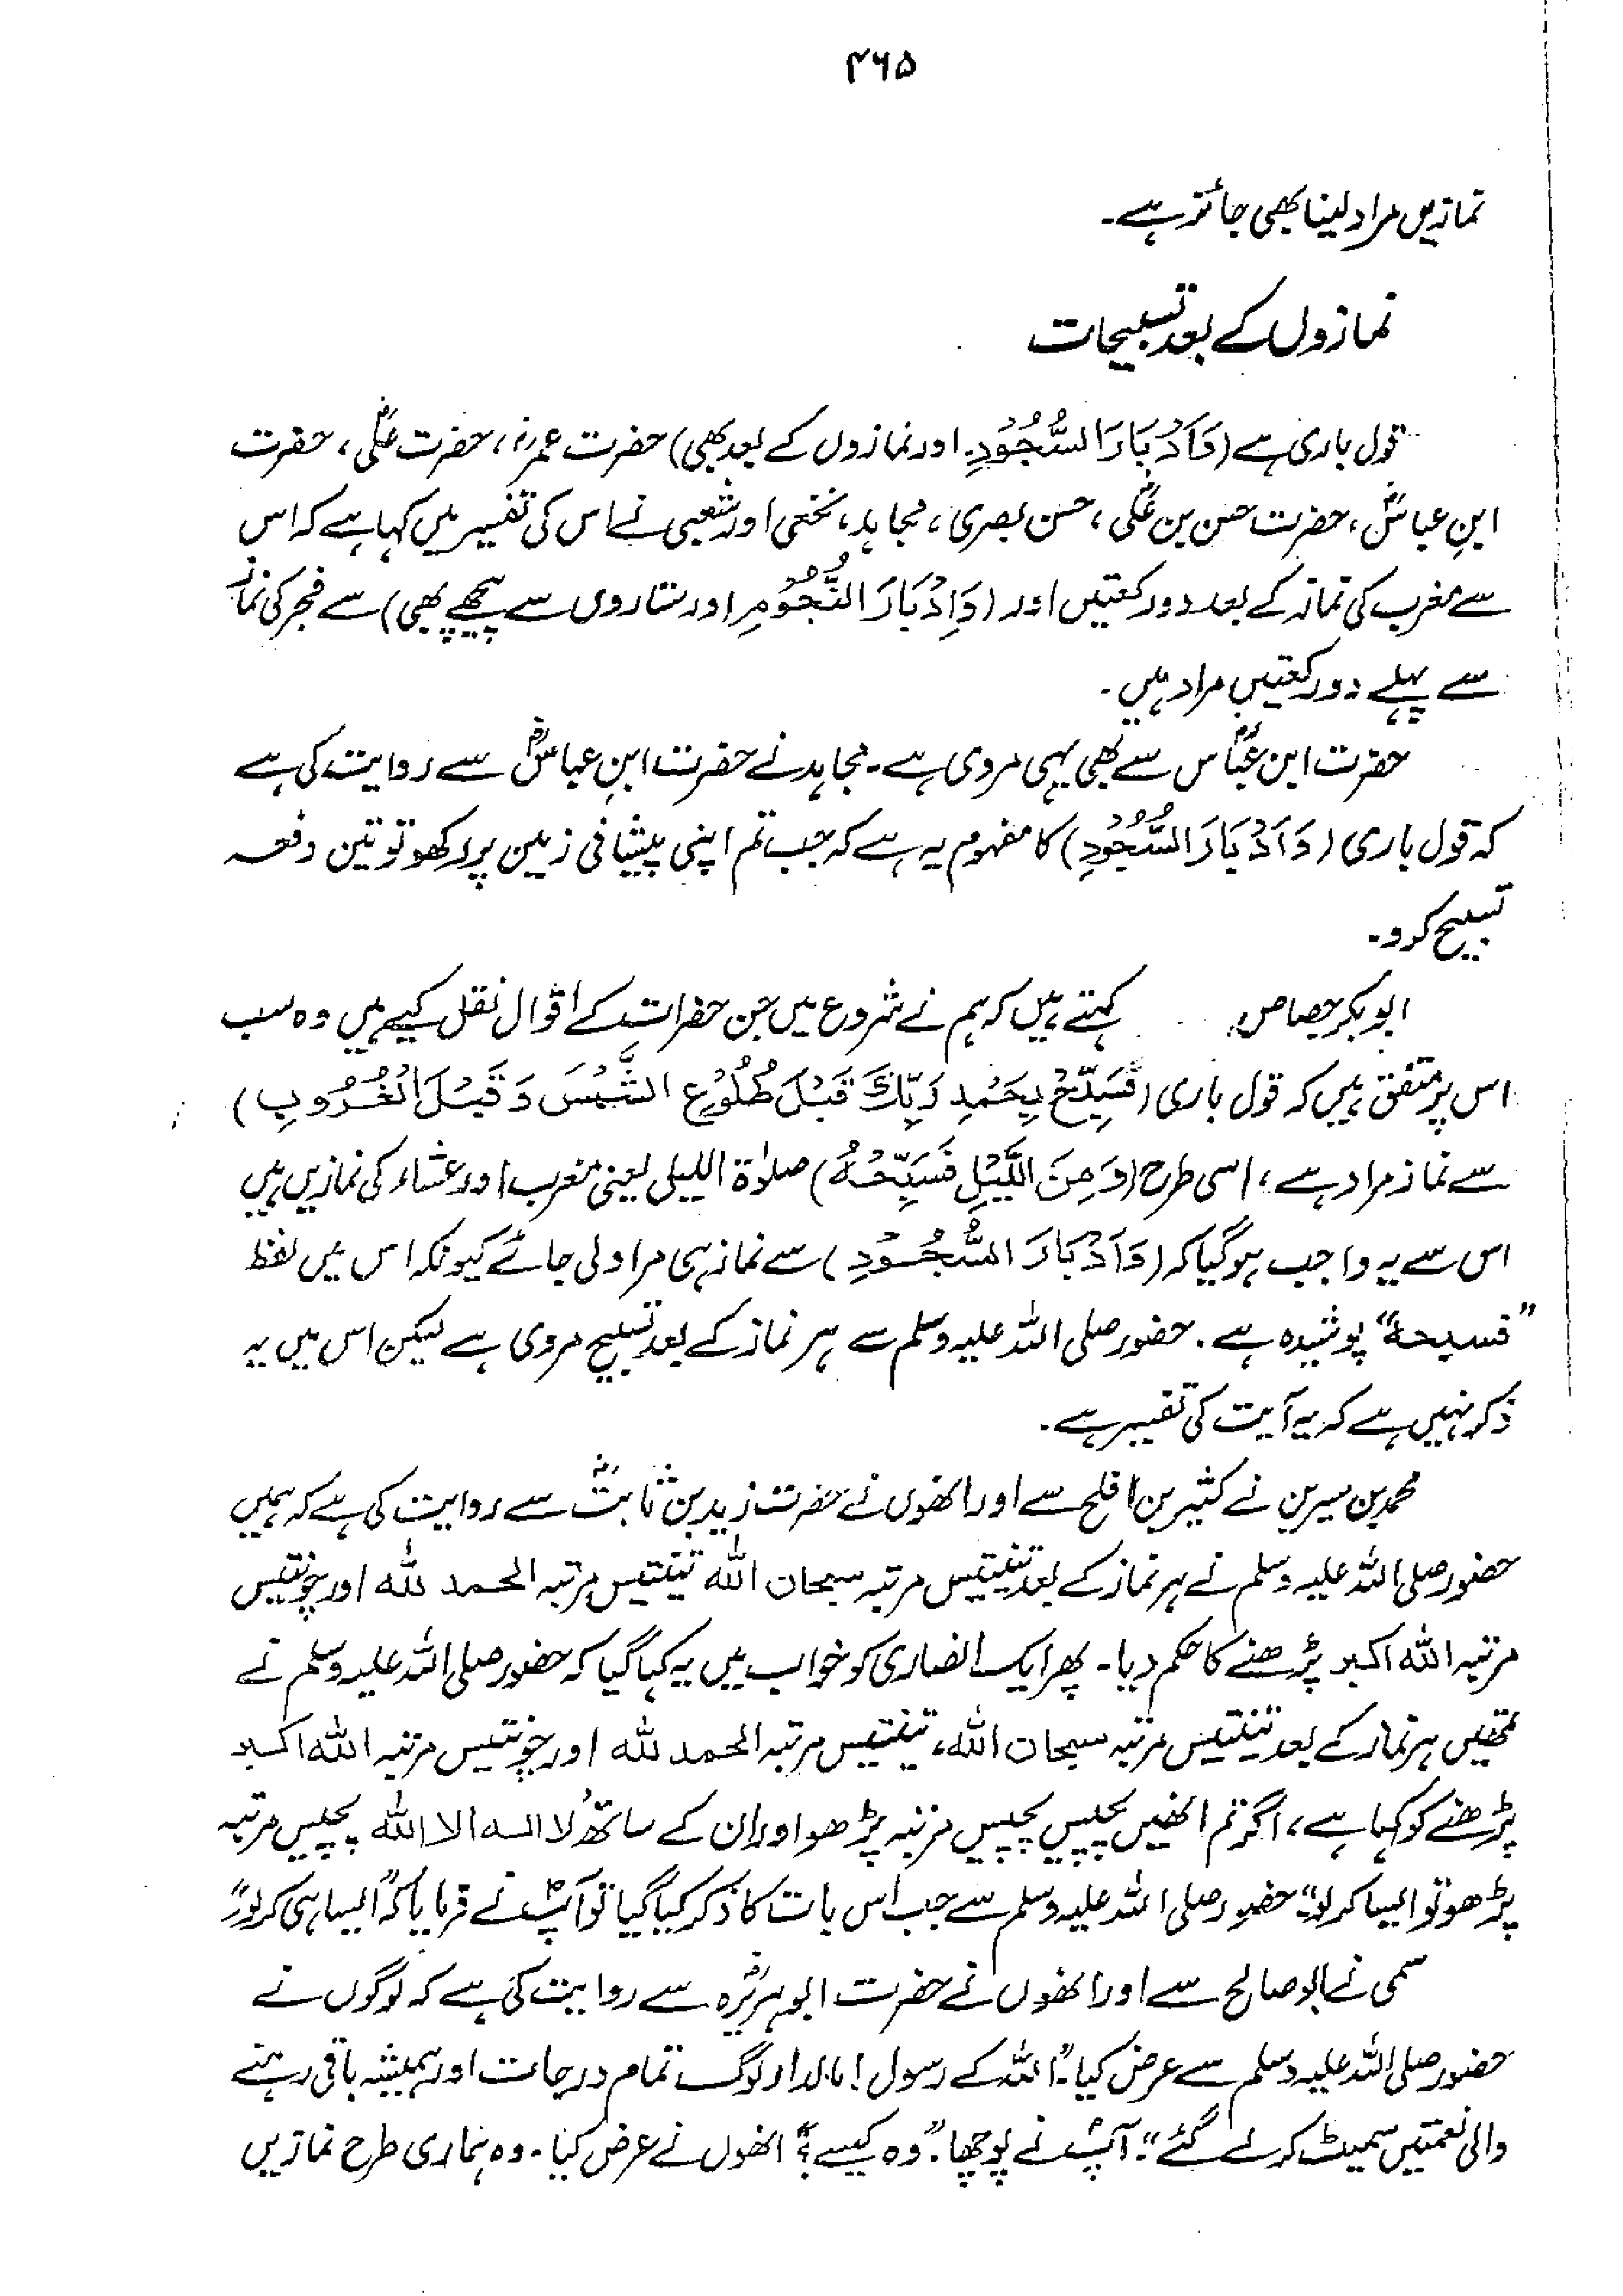 ۴۶۵
نمازیں مراد لینا بھی جائز ہے۔
نمازوں کے بعد تسبیحات
قول باری ہے (وَاَدْبَارَ السُّجُوْدِ۔ اور نمازوں کے بعد بھی) حضرت عمرؓ، حضرت علیؓ، حضرت
ابنِ عباسؓ، حضرت حسن بن علیؓ، حسن بصری، مجاہد، نخعی اور شعبی نے اس کی تفسیر میں کہا ہے کہ اس
سے مغرب کی نماز کے بعد دو رکعتیں اور (وَاِدْبَارَ النُّجُوْمِ اور ستاروں سے پیچھے بھی) سے فجر کی نماز
سے پہلے دو رکعتیں مراد ہیں۔
حضرت ابن عباسؓ سے بھی یہی مروی ہے۔ مجاہد نے حضرت ابنِ عباسؓ سے روایت کی ہے
کہ قول باری (وَاَدْبَارَ السُّجُوْدِ) کا مفہوم یہ ہے کہ جب تم اپنی پیشانی زمین پر رکھو تو تین دفعہ
تسبیح کرو۔
ابوبکر جصاص کہتے ہیں کہ ہم نے شروع میں جن حضرات کے اقوال نقل کیے ہیں وہ سب
اس پر متفق ہیں کہ قول باری (فَسَبِّحْ بِحَمْدِ رَبِّكَ قَبْلَ طُلُوْعِ الشَّمْسِ وَقَبْلَ الْغُرُوْبِ)
سے نماز مراد ہے، اسی طرح (وَمِنَ اللَّيْلِ فَسَبِّحْهُ) صلوٰۃ اللیل یعنی مغرب اور عشاء کی نمازیں ہیں
اس سے یہ واجب ہوگیا کہ (وَاَدْبَارَ السُّجُوْدِ) سے نماز ہی مراد لی جائے کیونکہ اس میں لفظ
”فسبحہ“ پوشیدہ ہے۔ حضور صلی اللہ علیہ وسلم سے ہر نماز کے بعد تسبیح مروی ہے لیکن اس میں یہ
ذکر نہیں ہے کہ یہ آیت کی تفسیر ہے۔
محمد بن سیرین نے کثیر بن افلح سے اور انھوں نے حضرت زید بن ثابتؓ سے روایت کی ہے کہ ہمیں
حضور صلی اللہ علیہ وسلم نے ہر نماز کے بعد تینتیس مرتبہ سبحان اللہ تینتیس مرتبہ الحمد للہ اور چونتیس
مرتبہ اللہ اکبر پڑھنے کا حکم دیا۔ پھر ایک انصاری کو خواب میں یہ کہا گیا کہ حضور صلی اللہ علیہ وسلم نے
تمھیں ہر نماز کے بعد تینتیس مرتبہ سبحان اللہ، تینتیس مرتبہ الحمد للہ اور چونتیس مرتبہ اللہ اکبر
پڑھنے کو کہا ہے، اگر تم انھیں پچیس پچیس مرتبہ پڑھو اور ان کے ساتھ لا الہ الا اللہ پچیس مرتبہ
پڑھو تو ایسا کر لو“ حضور صلی اللہ علیہ وسلم سے جب اس بات کا ذکر کیا گیا تو آپؐ نے فرمایا کہ ”ایسا ہی کر لو۔“
سمی نے ابو صالح سے اور انھوں نے حضرت ابوہریرہؓ سے روایت کی ہے کہ لوگوں نے
حضور صلی اللہ علیہ وسلم سے عرض کیا۔ ”اللہ کے رسول! مالدار لوگ تمام درجات اور ہمیشہ باقی رہنے
والی نعمتیں سمیٹ کر لے گئے“۔ آپؐ نے پوچھا۔ ”وہ کیسے؟“ انھوں نے عرض کیا۔ وہ ہماری طرح نمازیں